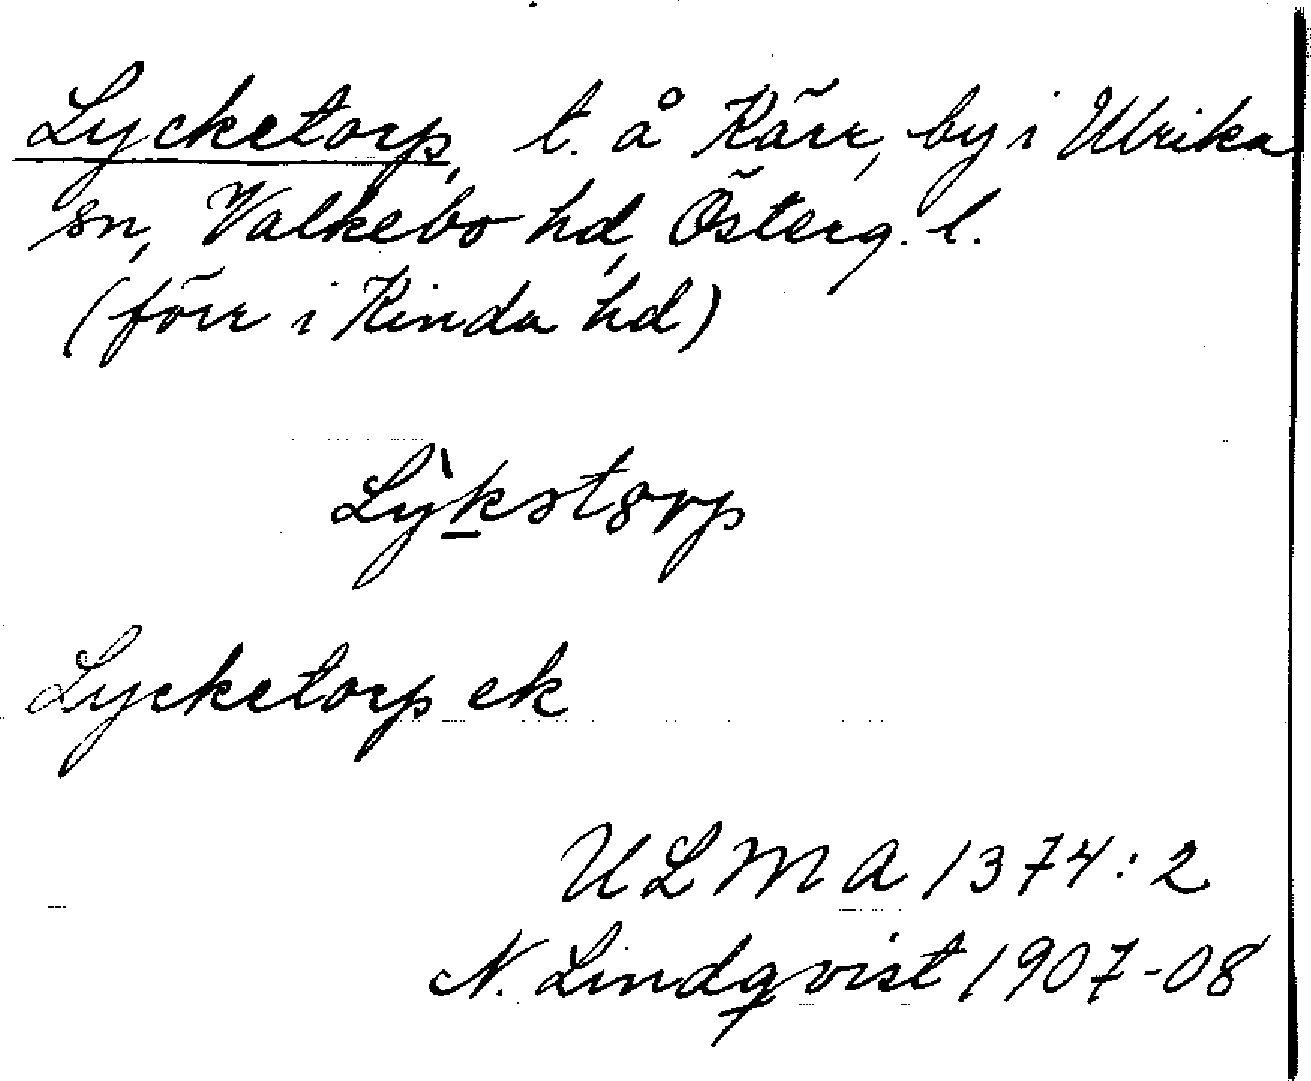 Lycketorp, t. å Kärr, by i Ulrika
sn, Valkebo hd, Österg. l.
(förr i Kinda hd)
Lỳkətɷrp
Lycketorp ek
ULMA 1374:2
N. Lindqvist 1907-08